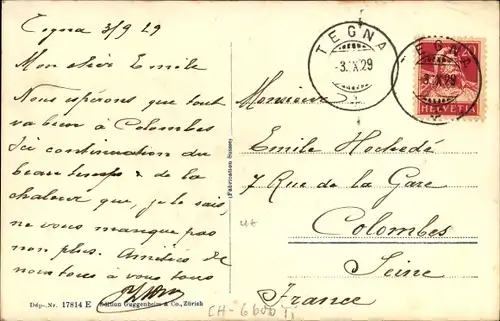 Tegna 3/9 29
Mon cher Emile
Nous espérons que tout
va bien à Colombes
Ici continuation du
beau temps & de la
chaleur que, je le sais,
ne vous manque pas
non plus. Amitiés de
nous tous à vous tous
(Fabrication Suisse)
TEGNA
-3.IX.29
TEGNA
-3.IX.29
HELVETIA
Monsieur
Emile Hochedé
7 Rue de la Gare
Colombes
Seine
France
Dép.-Nr. 17814 E Edition Guggenheim & Co., Zürich
CH-6600